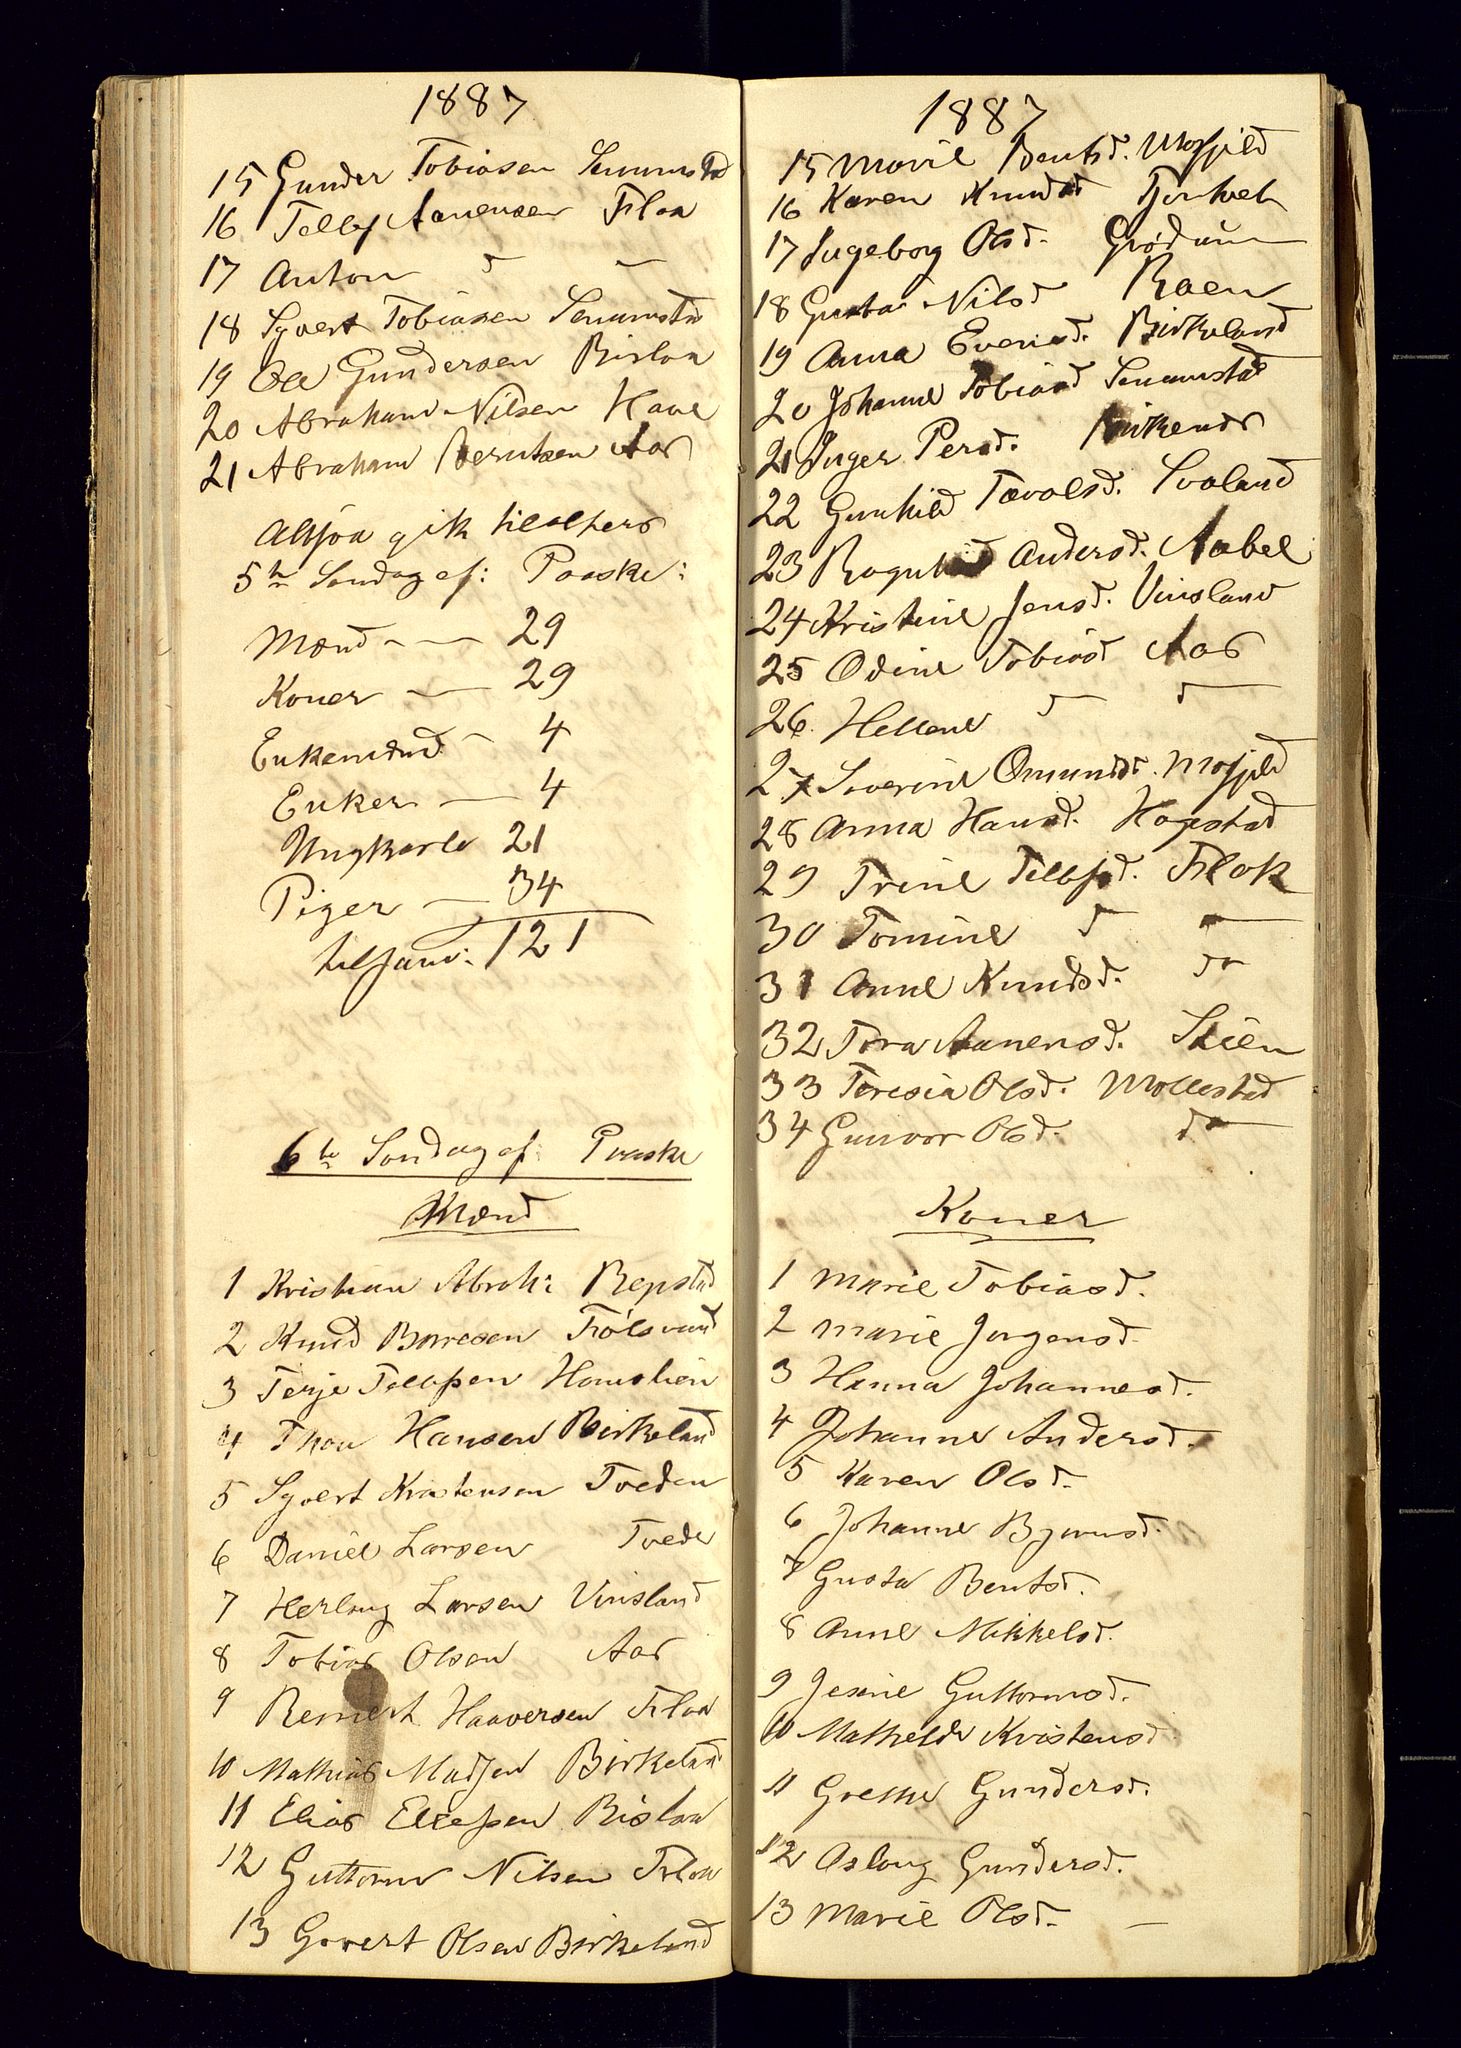 1887
15 Gunder Tobiasen Senumstad
16 Tellef Aanensen Flaa
17 Anton d —
18 Syvert Tobiasen Senumstad
19 Ole Gundersen Birlaa
20 Abraham Nilsen Haave
21 Abraham Berntsen Aas
Altsaa gik tilalters
5te Søndag ef: Paaske:
Mænd — 29
Koner — 29
Enkemænd — 4
Enker — 4
Ungkarle 21
Piger — 34
tilsam: 121
6te Søndag ef: Paaske
Mænd
1 Kristian Abrah: Repstad
2 Knud Børresen
3 Terje Tellefsen Hamslien
4 Thou Hansen Birkeland
5 Syvert Kristensen Tveden
6 Daniel Larsen Tvede
7 Herlaug Larsen Vinsland
8 Tobias Olsen Aas
9 Reinert Haaversen Flaa
10 Mathias Madsen Birkeland
11 Elias Ellefsen Bislaa
12 Guttorm Nilsen Flaa
13 Govert Olsen Birkeland
1887
15 Marie Bentsd. Mosfjeld
16 Karen Knudsd
17 Ingeborg Olsd. Grødum
18 Gusta Nilsd Raen
19 Anna Evensd. Birkeland
20 Johanne Tobiasd Senumstad
21 Inger Persd. Birkenes
22 Gunhild Tarvalsd. Svaland
23 Ragnhild Andersd. Aabel
24 Kristine Jensd. Vinsland
25 Odine Tobiasd Aas
26 Hellene d d —
27 Severine Omundsd. Mosfjeld
28 Anna Hansd. Hagestad
29 Trine Tellefsd. Flak
30 Tomine d —
31 Anne Knudsd. do
32 Tora Aanensd. Stien
33 Teresia Olsd. Mollestad
34 Gunvor Olsd. do
Koner
1 Marie Tobiasd.
2 Marie Jørgensd.
3 Hanna Johannesd.
4 Johanne Andersd.
5 Karen Olsd.
6 Johanne Bjørnsd.
7 Gusta Bentsd.
8 Anne Mikkelsd.
9 Jesine Guttormsd.
10 Mathelde Kristensd
11 Grethe Gundersd.
12 Aslaug Gundersd.
13 Marie Olsd. —